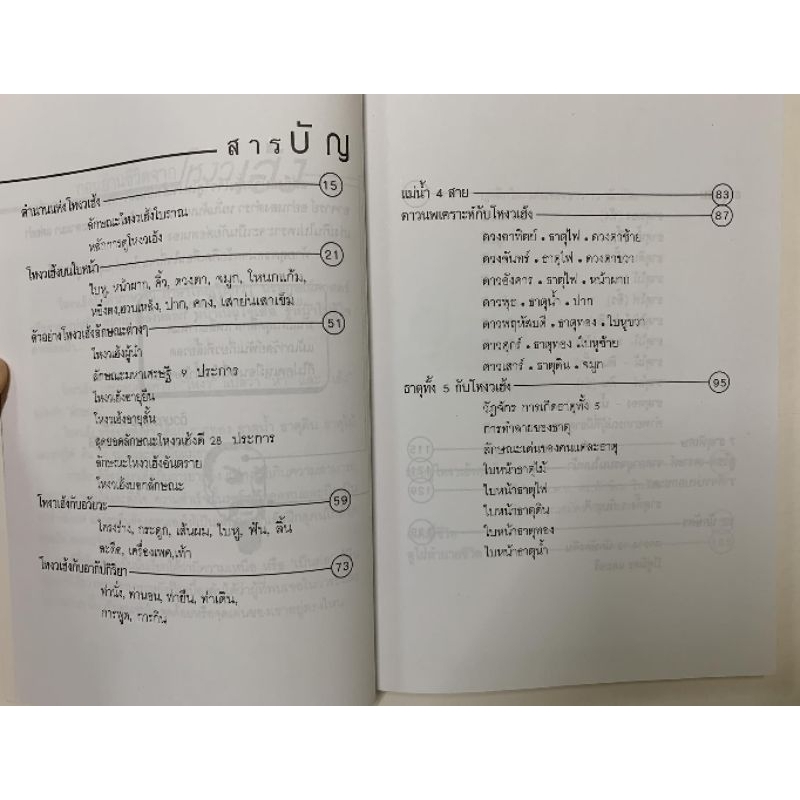 สารบัญ
ตำนานแห่งโหงวเฮ้ง 15
ลักษณะโหงวเฮ้งโบราณ
หลักการดูโหงวเฮ้ง
โหงวเฮ้งบนใบหน้า 21
ใบหู, หน้าผาก, คิ้ว, ดวงตา, จมูก, โหนกแก้ม,
หยิ่งตง,ฮวบเหล็ง, ปาก, คาง, เสาย่นเสาเข็ม
ตัวอย่างโหงวเฮ้งลักษณะต่างๆ 51
โหงวเฮ้งผู้นำ
ลักษณะมหาเศรษฐี 9 ประการ
โหงวเฮ้งอายุยืน
โหงวเฮ้งอายุสั้น
สุดยอดลักษณะโหงวเฮ้งดี 28 ประการ
ลักษณะโหงวเฮ้งอันตราย
โหงวเฮ้งบอกลักษณะ
โหงวเฮ้งกับอวัยวะ 59
โครงร่าง, กระดูก, เส้นผม, ใบหู, ฟัน, ลิ้น
สะดือ, เครื่องเพศ,เท้า
โหงวเฮ้งกับอากัปกิริยา 73
ท่านั่ง, ท่านอน, ท่ายืน, ท่าเดิน,
การพูด, การกิน
แม่น้ำ 4 สาย 83
ดาวนพเคราะห์กับโหงวเฮ้ง 87
ดวงอาทิตย์ . ธาตุไฟ . ดวงตาซ้าย
ดวงจันทร์ . ธาตุไฟ . ดวงตาขวา
ดาวอังคาร . ธาตุไฟ . หน้าผาก
ดาวพุธ . ธาตุน้ำ . ปาก
ดาวพฤหัสบดี . ธาตุทอง . ใบหูขวา
ดาวศุกร์ . ธาตุทอง .ใบหูซ้าย
ดาวเสาร์ . ธาตุดิน . จมูก
ธาตุทั้ง 5 กับโหงวเฮ้ง 95
วัฏจักร การเกิดธาตุทั้ง 5
การทำลายของธาตุ
ลักษณะเด่นของคนแต่ละธาตุ
ใบหน้าธาตุไม้
ใบหน้าธาตุไฟ
ใบหน้าธาตุดิน
ใบหน้าธาตุทอง
ใบหน้าธาตุน้ำ